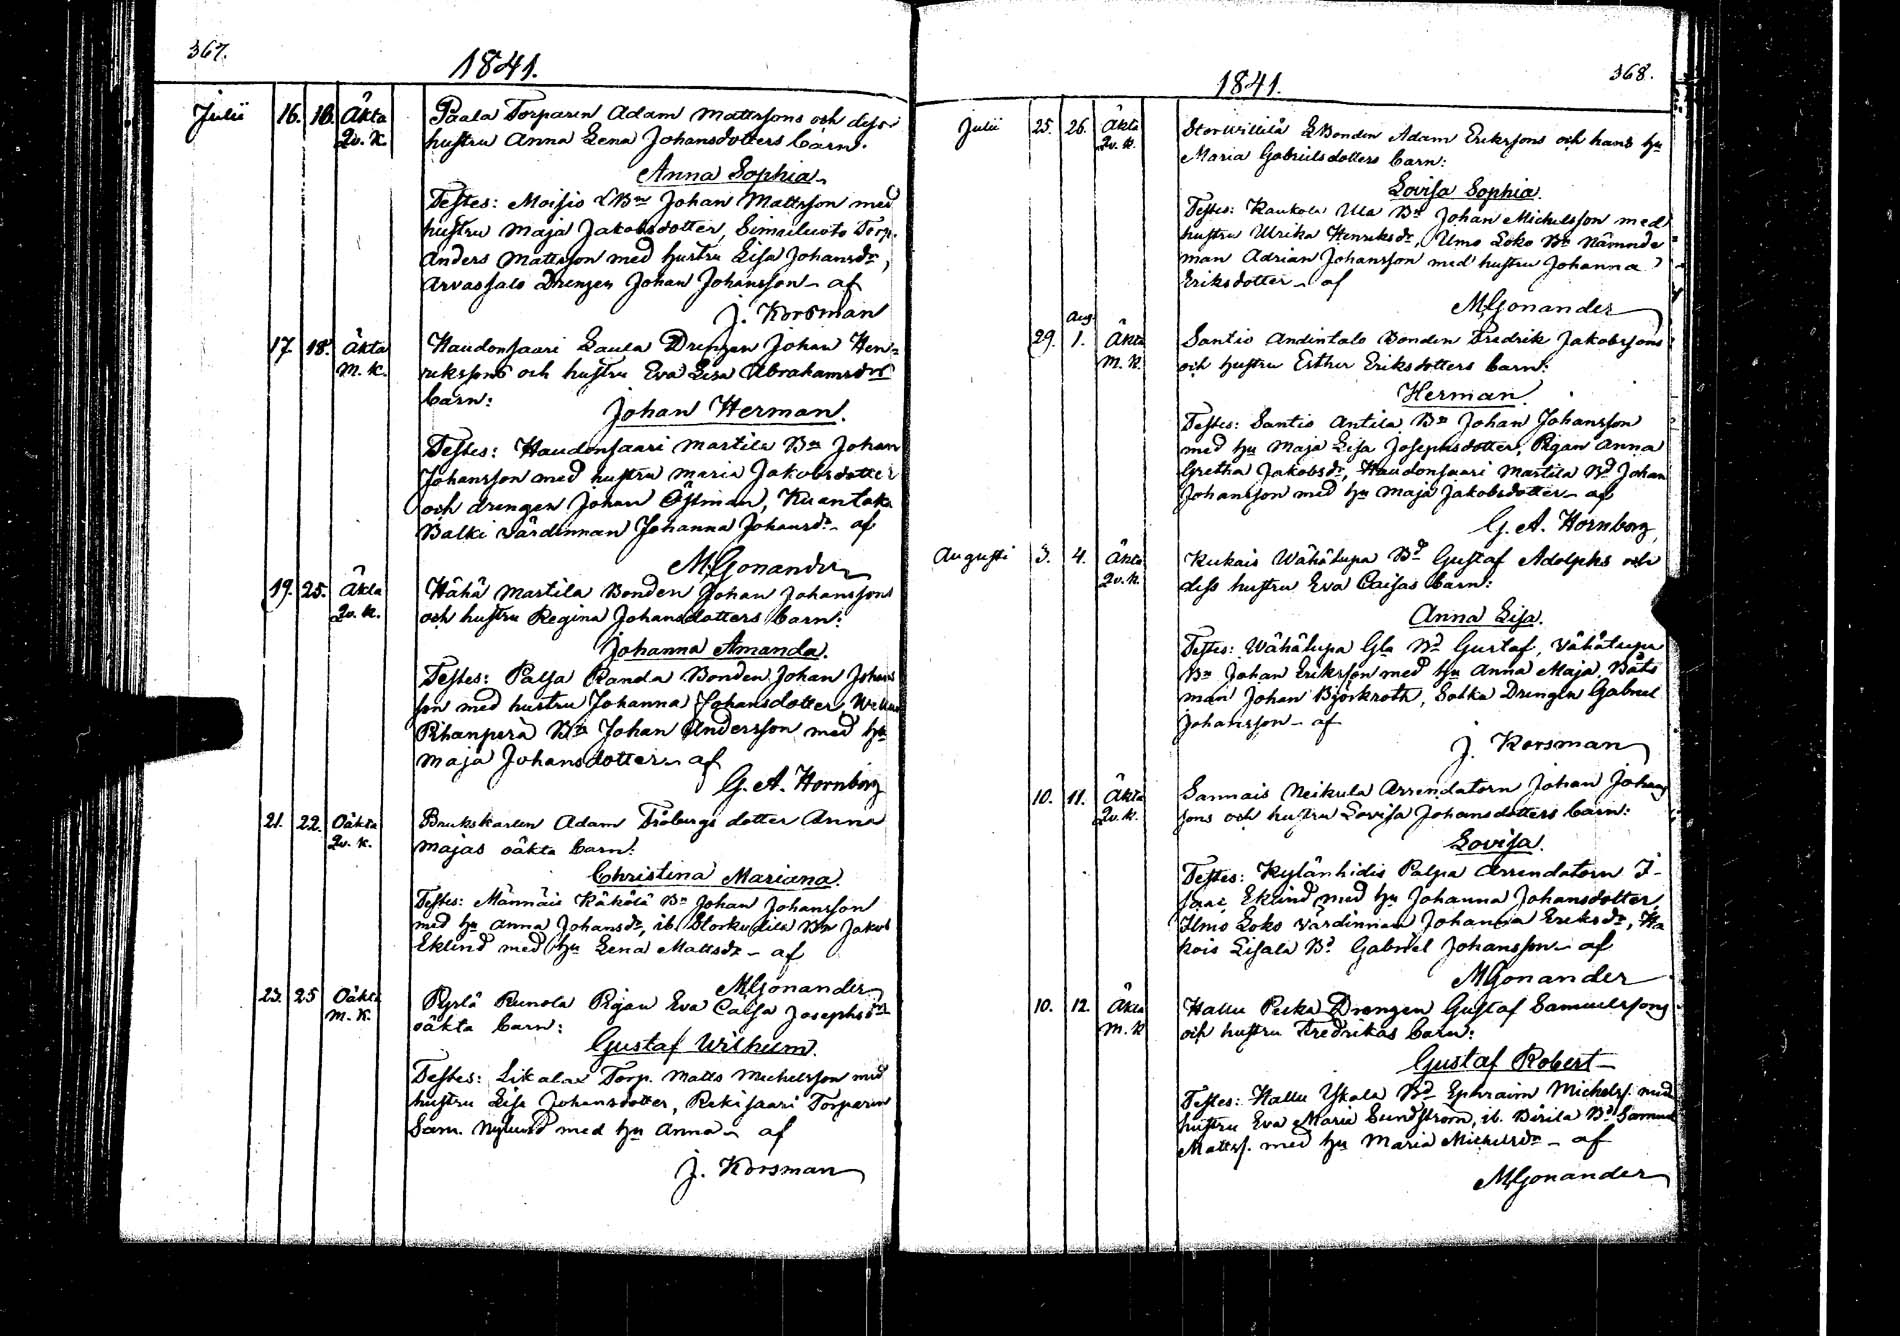 367.
1841.
Julii 16. 16. Äkta Paala Torparen Adam Mattssons och dess
Qv. K. hustru Anna Lena Johansdotters barn.
Anna Sophia.
Testes: Moisio LBn Johan Mattsson med
hustru Maja Jakobsdotter, Torp.
Anders Mattsson med hustru Lisa Johansdr,
Arvassalo Drengen Johan Johansson - af
J. Korsman
17. 18. Äkta Haudonsaari Laula Drengen Johan Hen=
M. K. rikssons och hustru Eva Lisa Abrahamsdrs
barn:
Johan Herman.
Testes: Haudonsaari Martila Bn Johan
Johansson med hustru Maria Jakobsdotter
och drengen Johan Östman,
Balki värdinnan Johanna Johansdr - af
M. Gonander
19. 25. Äkta Hähä Martila Bonden Johan Johanssons
Qv. K. och hustru Regina Johansdotters barn:
Johanna Amanda.
Testes: Palsa Ranola Bonden Johan Johans
son med hustru Johanna Johansdotter,
Rihanperä Bn Johan Andersson med hu
Maja Johansdotter - af
G. A. Hornborg
21. 22. Oäkta Brukskarlen Adam Fröbergs dotter Anna
Qv. K. Majas oäkta barn:
Christina Mariana.
Testes: Männäis Käkölä Bn Johan Johansson
med hu Anna Johansdr, ib. Bn Jakob
Eklund med hu Lena Mattsdr - af
M. Gonander
23. 25 Oäkta Pyslä Runola Pigan Eva Caisa Josephsdrs
M. K. oäkta barn:
Gustaf Wilhelm.
Testes: Torp. Matts Michelsson med
hustru Lisa Johansdotter, Torparen
Sam. Nylund med hu Anna - af
J. Korsman
368.
1841.
Julii 25. 26. Äkta Storwillilä LBonden Adam Erikssons och hans hu
Qv. K. Maria Gabrielsdotters barn:
Lovisa Sophia.
Testes: Kaukola Ula Bn Johan Michelsson med
hustru Ulrika Henriksdr, Ilmo Loko Bn Nämnde
man Adrian Johansson med hustru Johanna
Eriksdotter - af
M. Gonander
Aug.
29. 1. Äkta Santio Andintalo Bonden Fredrik Jakobssons
M. K. och hustru Esther Eriksdotters barn:
Herman.
Testes: Santio Antila Bn Johan Johansson
med hu Maja Lisa Josephsdotter, Pigan Anna
Gretha Jakobsdr, Haudonsaari Martila Bd Johan
Johansson med hu Maja Jakobsdotter - af
G. A. Hornborg
Augusti 3. 4. Äkta Kukais Wähälupa Bd Gustaf Adolphs och
Qv. K. dess hustru Eva Caisas barn:
Anna Lisa.
Testes: Wähälupa Gla Bd Gustaf, Vähälupa
Bn Johan Eriksson med hu Anna Maja, Båts
man Johan Björkroth, Salka Drengen Gabriel
Johansson - af
J. Korsman
10. 11. Äkta Sannais Neikula Arrendatorn Johan Johans
Qv. K. sons och hustru Lovisa Johansdotters barn:
Lovisa.
Testes: Kylänhidis Palpa Arrendatorn I-
saac Eklund med hu Johanna Johansdotter,
Ilmo Loko värdinnan Johanna Eriksdr, Ha
kois Lisala Bd Gabriel Johansson - af
M. Gonander
10. 12. Äkta Hallu Pecka Drengen Gustaf Samuelssons
M. K och hustru Fredrikas barn:
Gustaf Robert
Testes: Hallu Yskala Bd Ephraim Michelss. med
hustru Eva Maria Lundström, ib. Birila Bd Samuel
Mattss. med hu Maria Michelsdr - af
M. Gonander